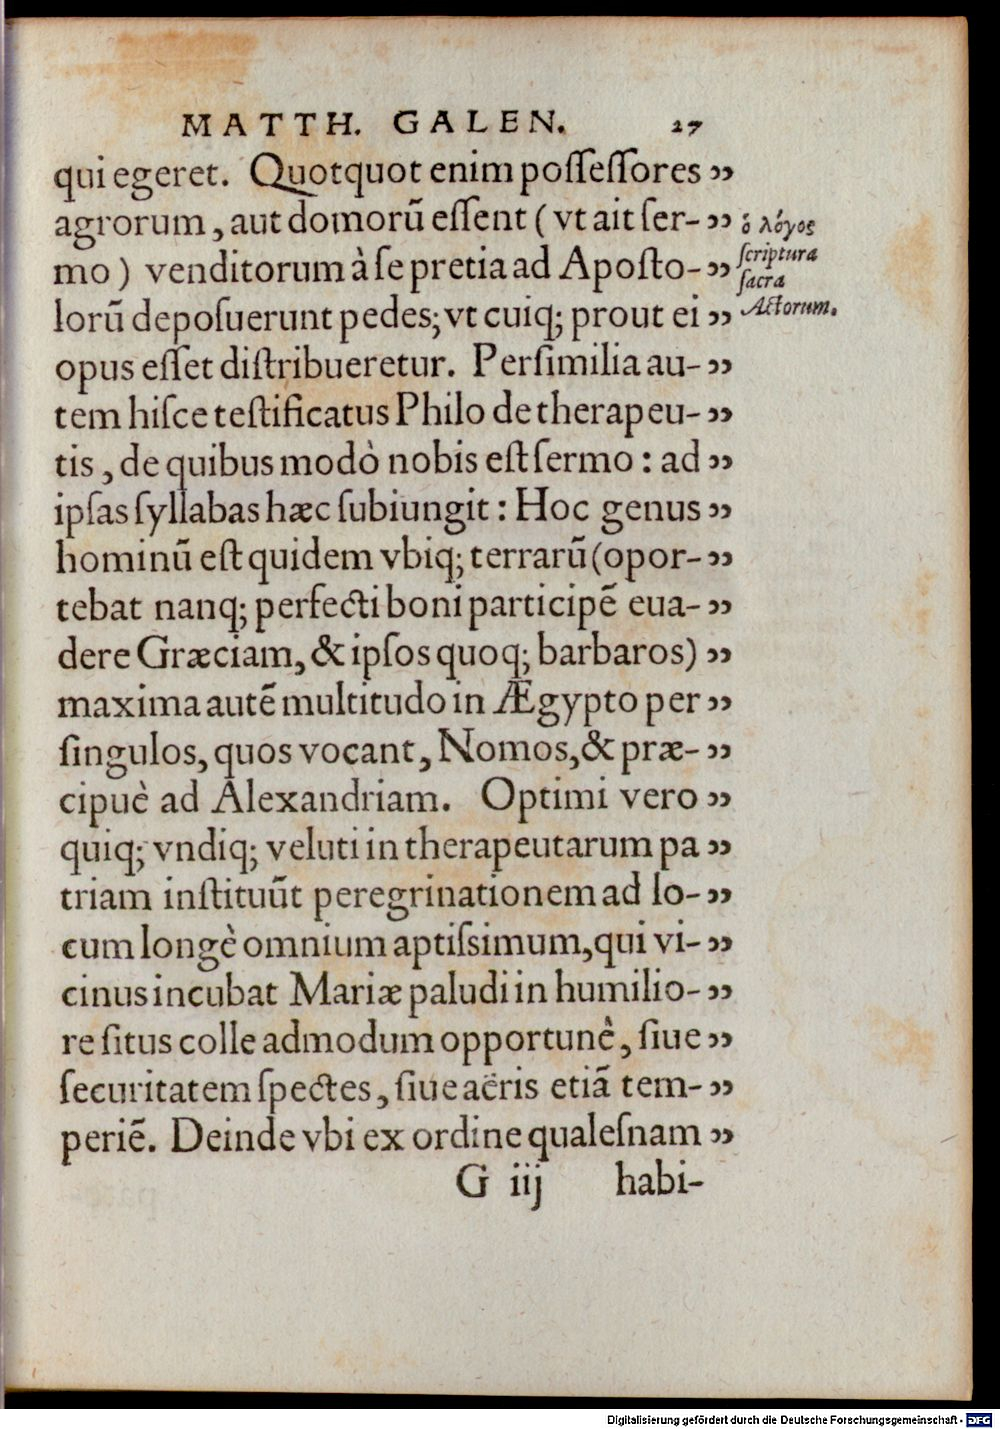 MATTH. GALEN. 27
qui egeret. Quotquot enim poſſeſſores ”
agrorum, aut domorũ eſſent (vt ait ſer- ”
mo) venditorum à ſe pretia ad Apoſto- ”
lorũ depoſuerunt pedes; vt cuiq; prout ei ”
opus eſſet diſtribueretur. Perſimilia au- ”
tem hiſce teſtificatus Philo de therapeu- ”
tis, de quibus modò nobis eſt ſermo: ad ”
ipſas ſyllabas hæc ſubiungit: Hoc genus ”
hominũ eſt quidem vbiq; terrarũ (opor- ”
tebat nanq; perfecti boni participẽ eua- ”
dere Græciam, & ipſos quoq; barbaros) ”
maxima autẽ multitudo in Ægypto per ”
ſingulos, quos vocant, Nomos, & præ- ”
cipuè ad Alexandriam. Optimi vero ”
quiq; vndiq; veluti in therapeutarum pa ”
triam inſtituũt peregrinationem ad lo- ”
cum longè omnium aptiſsimum, qui vi- ”
cinus incubat Mariæ paludi in humilio- ”
re ſitus colle admodum opportunè, ſiue ”
ſecuritatem ſpectes, ſiue aëris etiã tem- ”
periẽ. Deinde vbi ex ordine qualeſnam ”
G iij habi-
ὁ λόγος
ſcriptura
ſacra
Actorum.
Digitalisierung gefördert durch die Deutsche Forschungsgemeinschaft - DFG